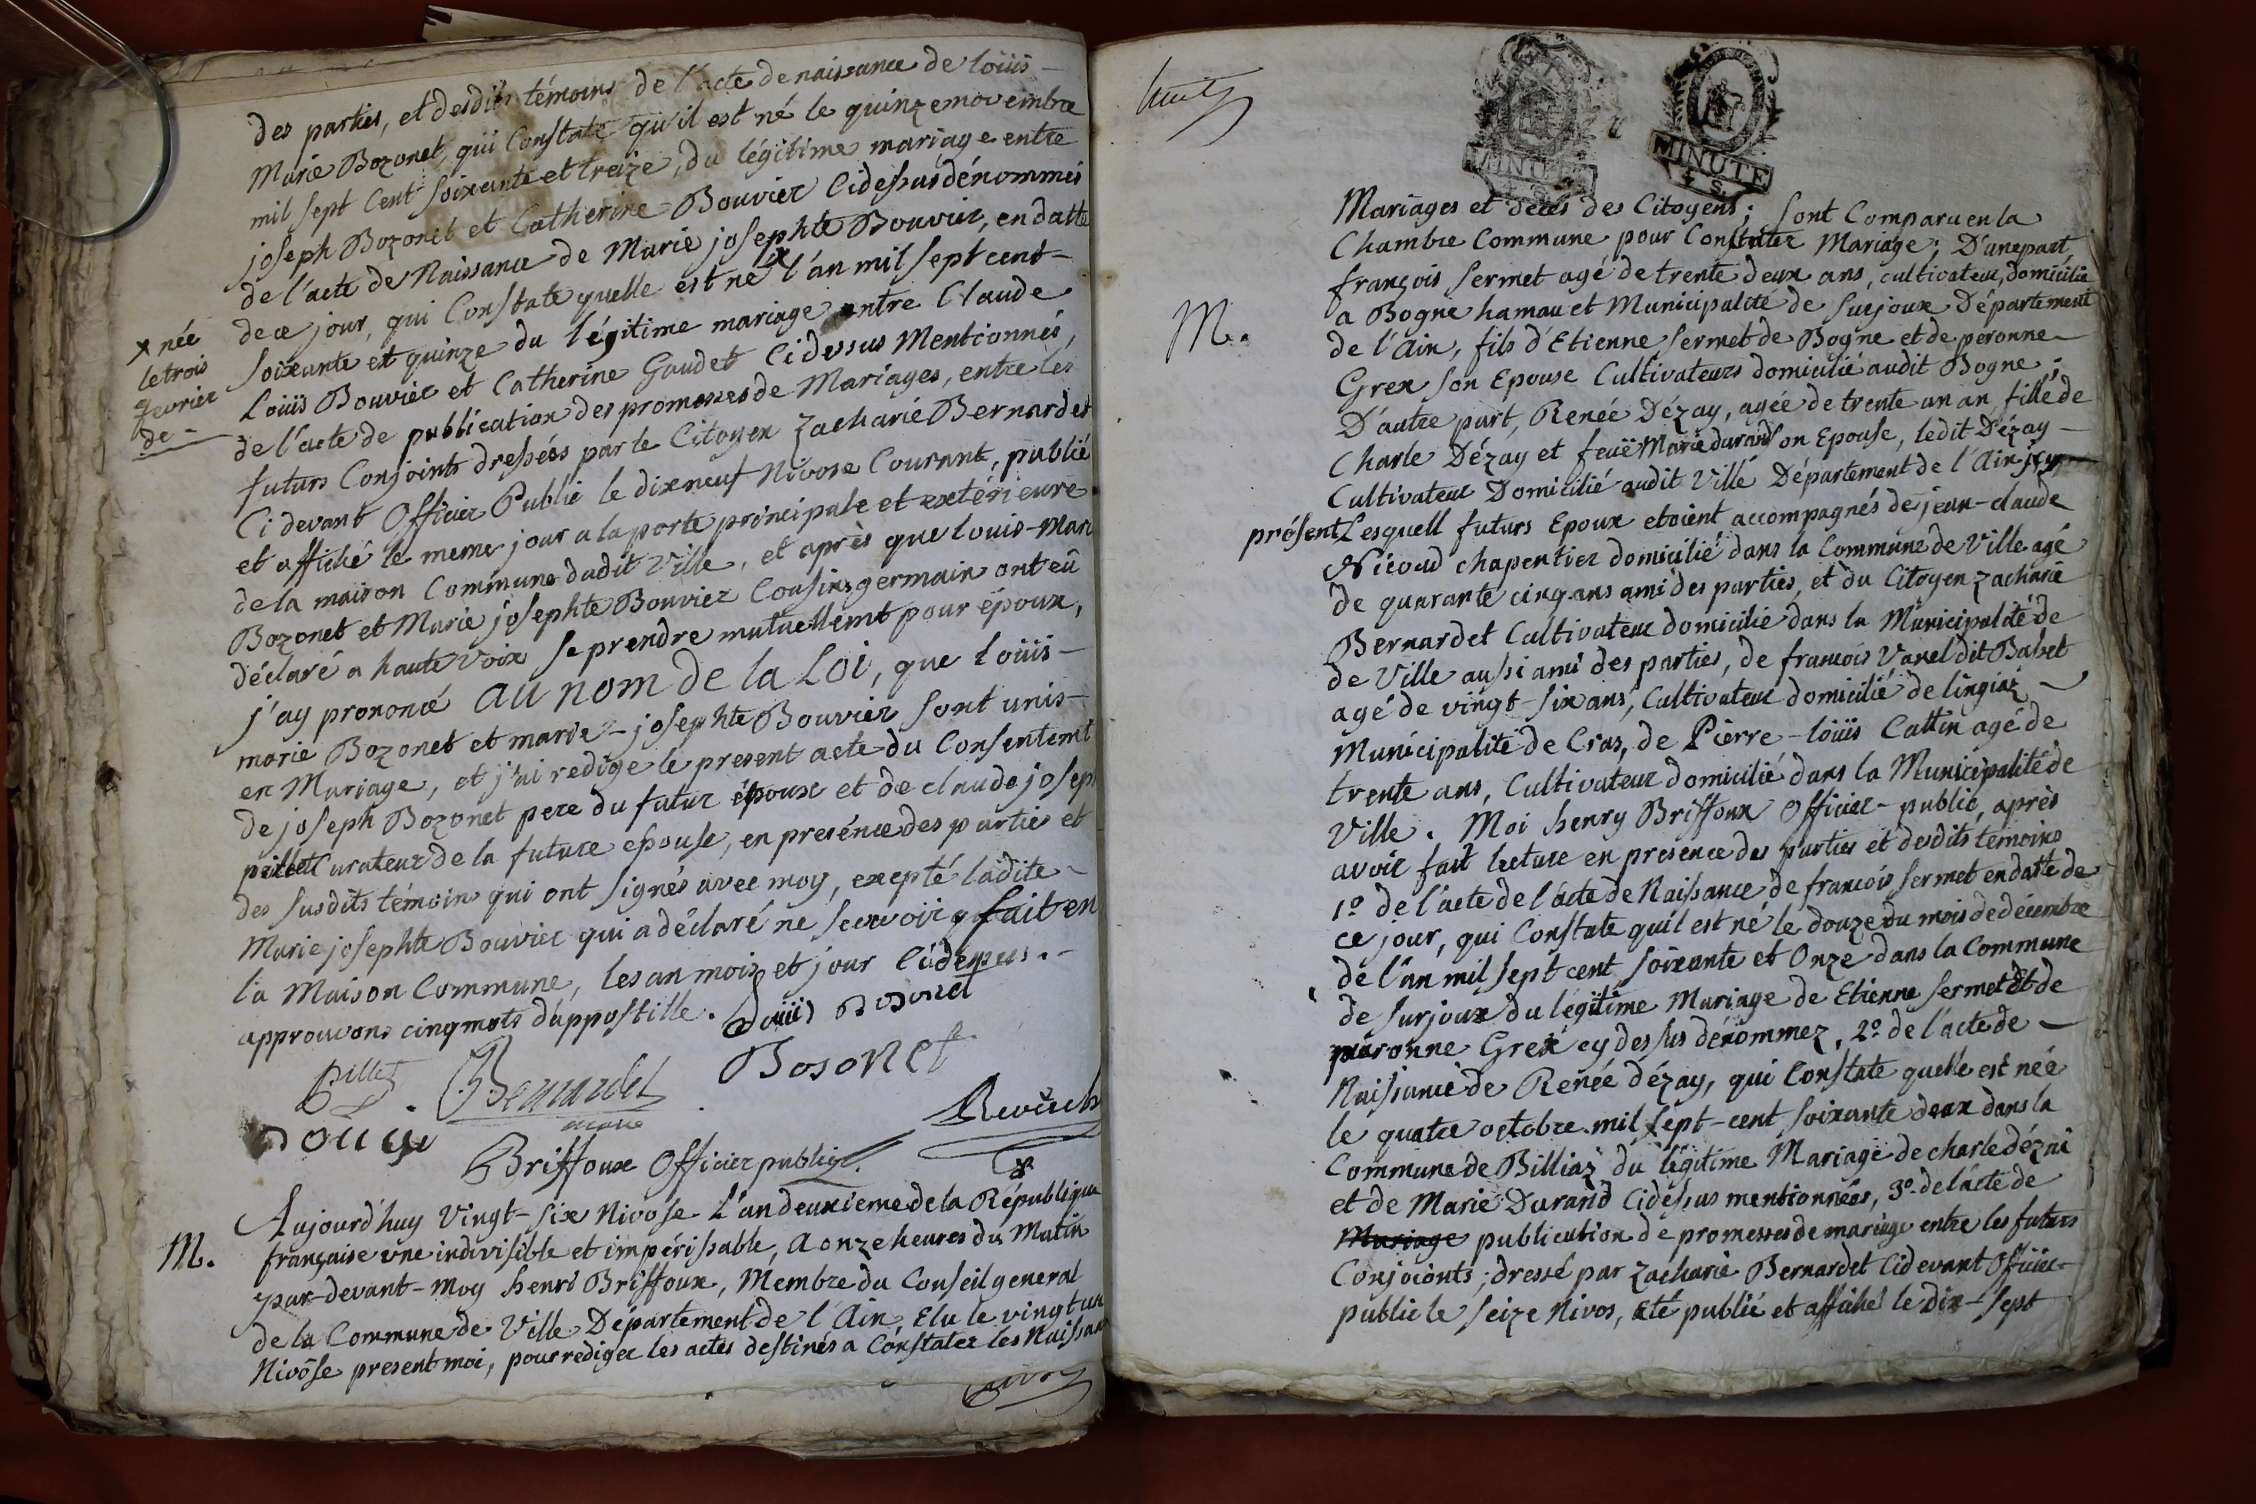 des parties, et desdits témoins de l'acte de naissance de loüis-
Marie Bozonet, qui Constate qu'il est né le quinze novembre
mil sept Cent soixante et treize, du légitime mariage entre
joseph Bozonet et Catherine Bouvier Cidessus dénommés
de l'acte de Naissance de Marie josephte Bouvier, en datte
de ce jour, qui Constate quelle est né x l'an mil sept cent-
x née
le trois
fevrier
de-
soixante et quinze du légitime mariage entre Claude
Loüis Bouvier et Catherine Goudet Cidessus Mentionnés,
de l'acte de publication des promesses de Mariages, entre les
futurs Conjoints dressées par le Citoyen Zacharie Bernardet
Ci devant Officier Public le dixneuf Nivose Courant, publié
et affiché le meme jour a la porte principale et extérieure
de la maison Commune dudit Ville, et après que Louis-Mar
Bozonet et Marie josephte Bouvier Cousins germain ont eû
déclaré a haute voix se prendre mutuellemt pour époux,
j'ay prononcé au nom de la Loi, que Loüis-
marie Bozonet et marie-josephte Bouvier sont unis-
en Mariage, et j'ai redigé le present acte du Consentemt
de joseph Bozonet pere du futur époux et de claude joseph
pillet Curateur de la future épouse, en presénce des parties et
des susdits témoins qui ont signés avec moy, exepté ladite-
Marie josephte Bouvier qui a déclaré ne scavoir fait en
la Maison Commune, les an mois et jour Cidessus.-
approuvons cinq mots d'appostille. Louis Bosonet
Pillet Bernardet Bosonet
Briffoux Officier public.
M.
Aujourd'huy Vingt-six Nivose L'an deuxieme de la République
française une indivisible et impérissable, a onze heures du Matin
par-devant-moy henri Briffoux, Membre du Conseil general
de la Commune de Ville Département de l'Ain, Elu le vingt un
Nivôse present moi, pour rediger les actes destinés a Constater les Naissan
huit
MINUTE
4 S.
MINUTE
4 S.
Mariages et décès des Citoyens; sont Comparu en la
Chambre Commune pour Constater Mariage; D'une part
françois sermet agé de trente deux ans, cultivateur, domicilié
M.
a Bogne hamau et Municipalité de surjoux Département
de l'Ain, fils d'Etienne sermet de Bogne et de peronne-
Grex son Epouse Cultivateurs domicilié audit Bogne;
D'autre part, Renée Dézay, agée de trente un an fille de
Charle Dézay et feuë Marie durand son Epouse, ledit Dézay-
Cultivateur Domicilié audit Ville Département de l'Ain
présent Lesquell futurs Epoux etoient accompagnés de jean-claude
Nicoud chapentier domicilié dans la Commune de Ville agé
de quarante cinq ans ami des parties, et du Citoyen Zacharie
Bernardet Cultivateur domicilié dans la Municipalité de
de Ville aussi ami des parties, de francois Vanel dit Babet
agé de vingt-six ans, Cultivateur domicilié de lingiaz
Municipalité de Cras, de Pierre-loüis Cattin agé de
trente ans, Cultivateur domicilié dans la Municipalité de
Ville. Moi henry Briffoux Officier-public, après
avoir fait lecture en presence des parties et desdits témoins
1º de l'acte de l'acte de Naissance de francois sermet en datte de
ce jour, qui Constate qu'il est né le douze du mois de décembre
de l'an mil sept cent soixante et Onze dans la Commune
de surjoux du légitime Mariage de Etienne sermet Et de
péronne Grex cy dessus dénommez, 2º de l'acte de-
Naissance de Renée dézay, qui Constate quelle est née
le quatre octobre mil sept-cent soixante deux dans la
Commune de Billiaz du légitime Mariage de charle dézai
et de Marie Durand Cidessus mentionnées, 3º de l'acte de
Mariage publication de promesses de mariage entre les futurs
Conjoionts; dressé par Zacharie Bernardet Cidevant Officier-
public le seize Nivos, eté publié et affiché le dix-sept